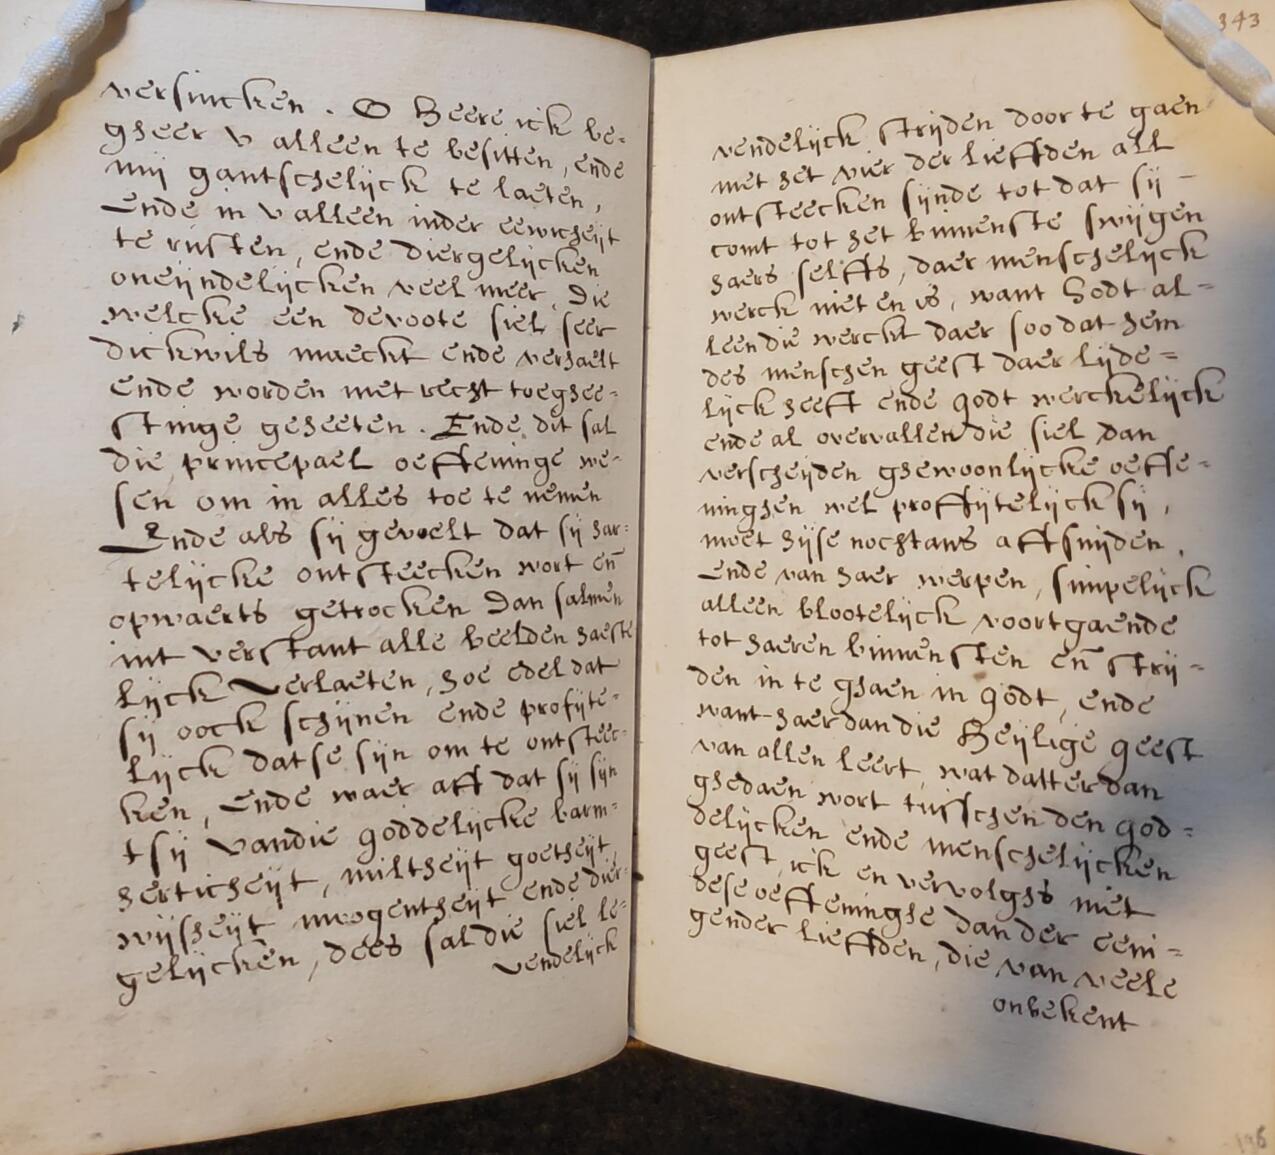 versincken. O Heere ick be=
gheer v alleen te besitten, ende
mij gantschelijck te laeten,
Ende in v alleen inder eewicheijt
te rusten, ende diergelijcken
oneijndelijcken veel meer, Die
welcke een devoote siel seer
dickwils maeckt ende verhaelt
ende worden met recht toeghee=
stinge geheeten. Ende dit sal
die principael oeffeninge we=
sen om in alles toe te nemen
Ende als sij gevoelt dat sij har=
telijcke ontsteecken wort en̄
opwaerts getrocken Dan salmen
int verstant alle beelden haeste
lijck Verlaeten, hoe edel dat
sij oock schijnen ende profijte=
lijck datse sijn om te ontstec=
ken, Ende waer aff dat sij sijn
tsij vandie goddelijcke barm=
herticheijt, miltheijt goetheijt,
wijsheijt mogentheijt ende dier=
gelijcken, dees sal die siel le=
vendelijck
343
vendelijck strijden door te gaen
met het vier der lieffden all
ontsteecken sijnde tot dat sij -
comt tot het binnenste swijgen
haers selffs, daer menschelijck
werck niet en is, want Godt al=
leen die werckt daer soo dat hem
des menschen geest daer lijde=
lijck heeft ende Godt werckelijck
ende al overvallen die siel dan
verscheijden ghewoonlijcke oeffe=
ninghen wel proffijtelijck sij,
moet sijse nochtans affsnijden,
Ende van haer werpen, simpelijck
alleen blootelijck voortgaende
tot haeren binnensten en̄ strij=
den in te ghaen in Godt, ende
want haer dan die Heijlige Geest
van allen leert, wat datter dan
ghedaen wort tusschen den God=
delijcken ende menschelijcken
geest, ick en vervolghs niet
dese oeffeninghe dan der eeni=
gender lieffden, die van veele
onbekent
196